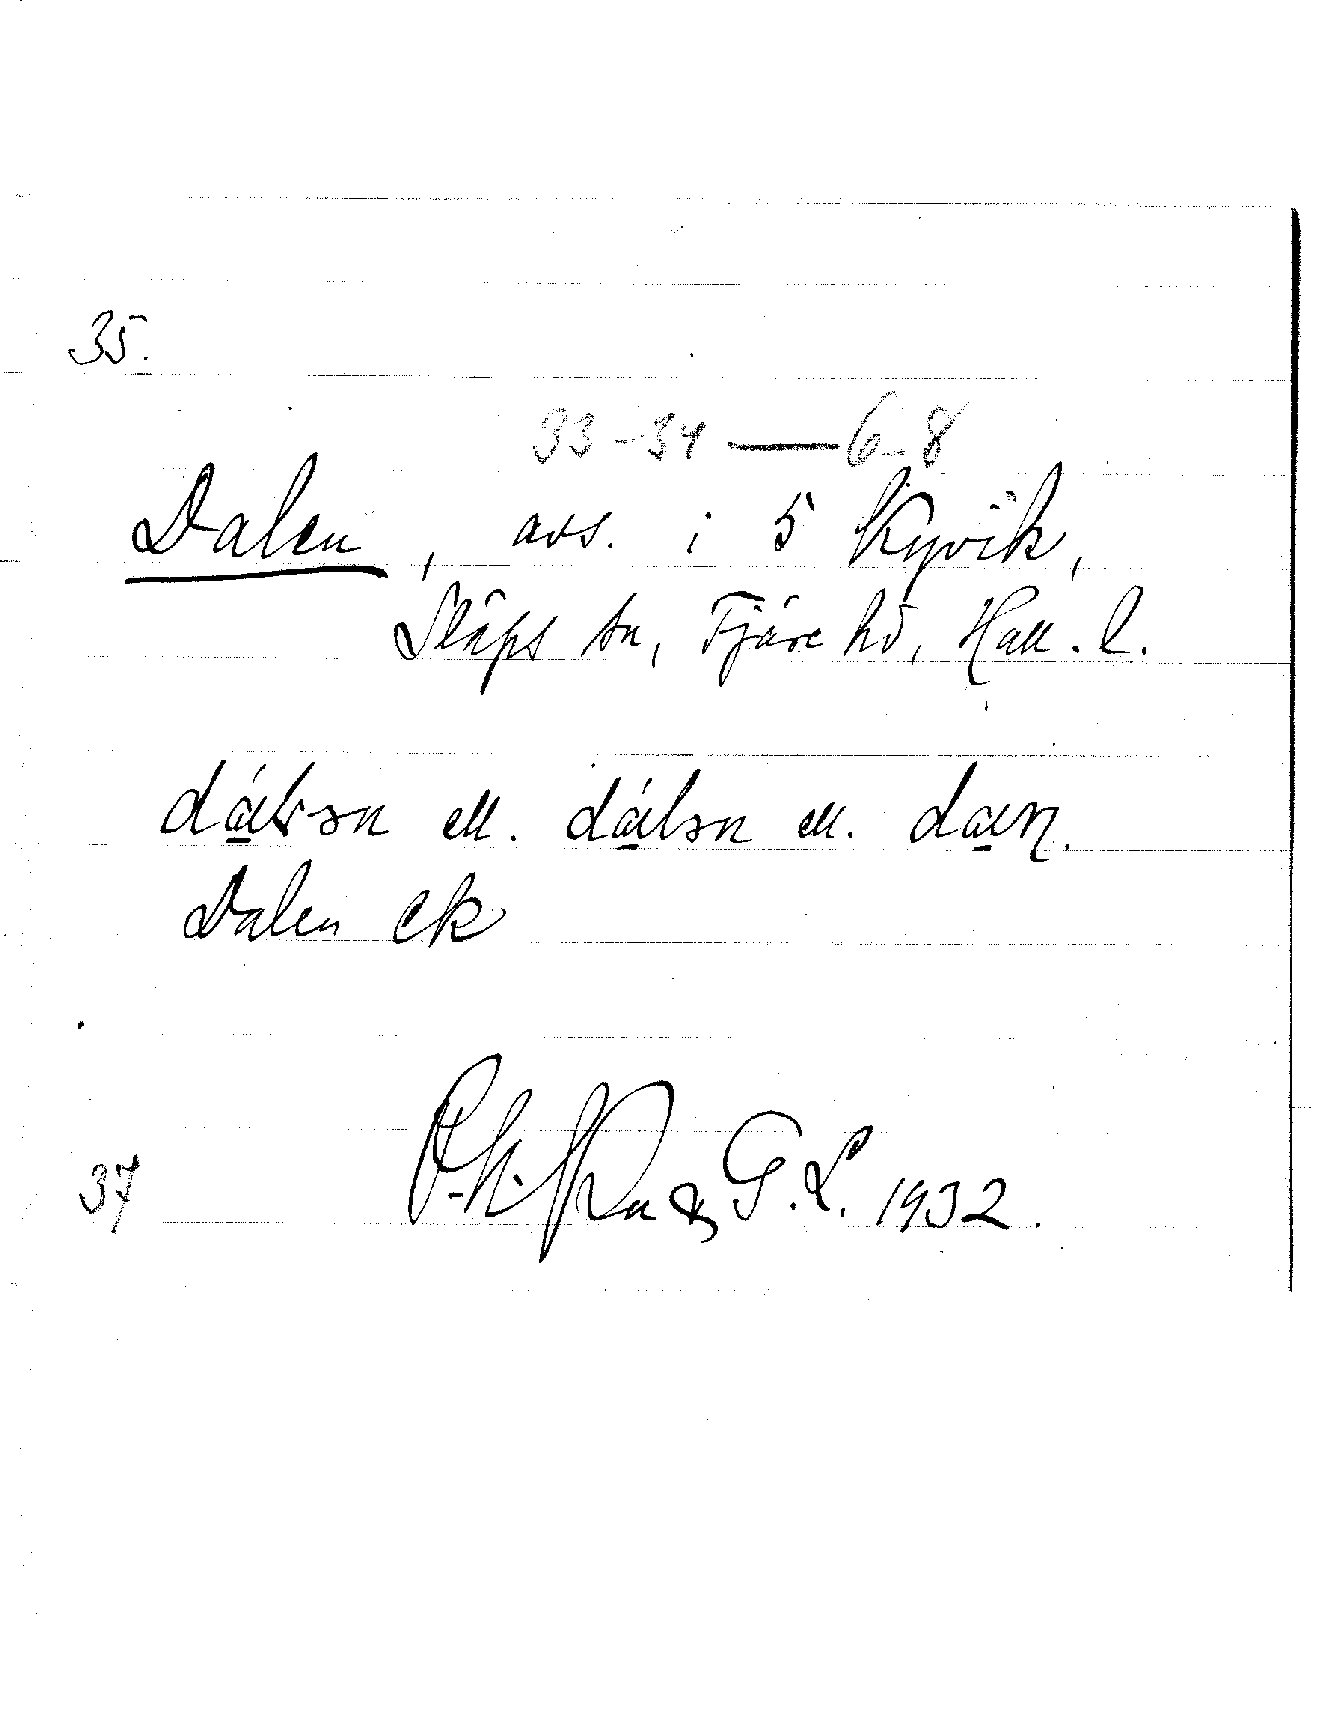 35.
33-34 — 6-8
Dalen, avs. i 5 Kyvik,
Släps sn, Fjäre hd, Hall. l.
ell. ell.
Dalen ek
& G. L. 1932.
37